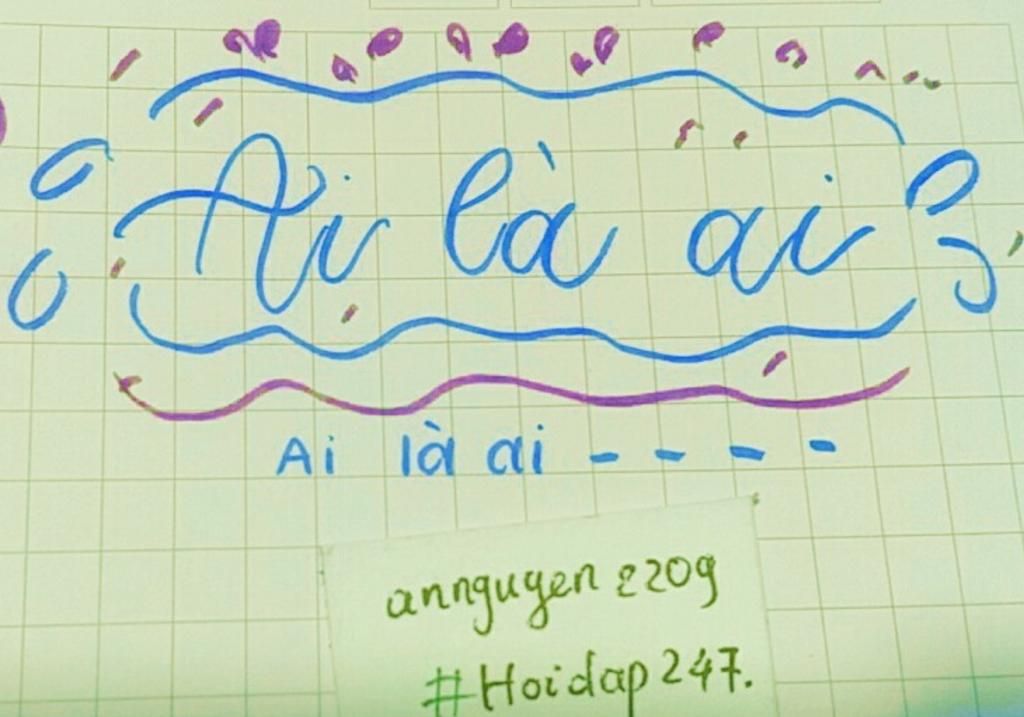 Ai là ai
Ai là ai - - - -
annguyen 2209
#Hoidap247.